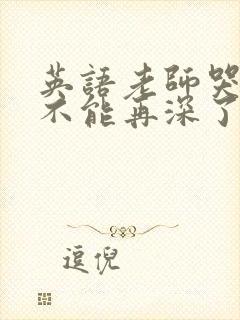 英語老師哭
不能再深了
逗倪